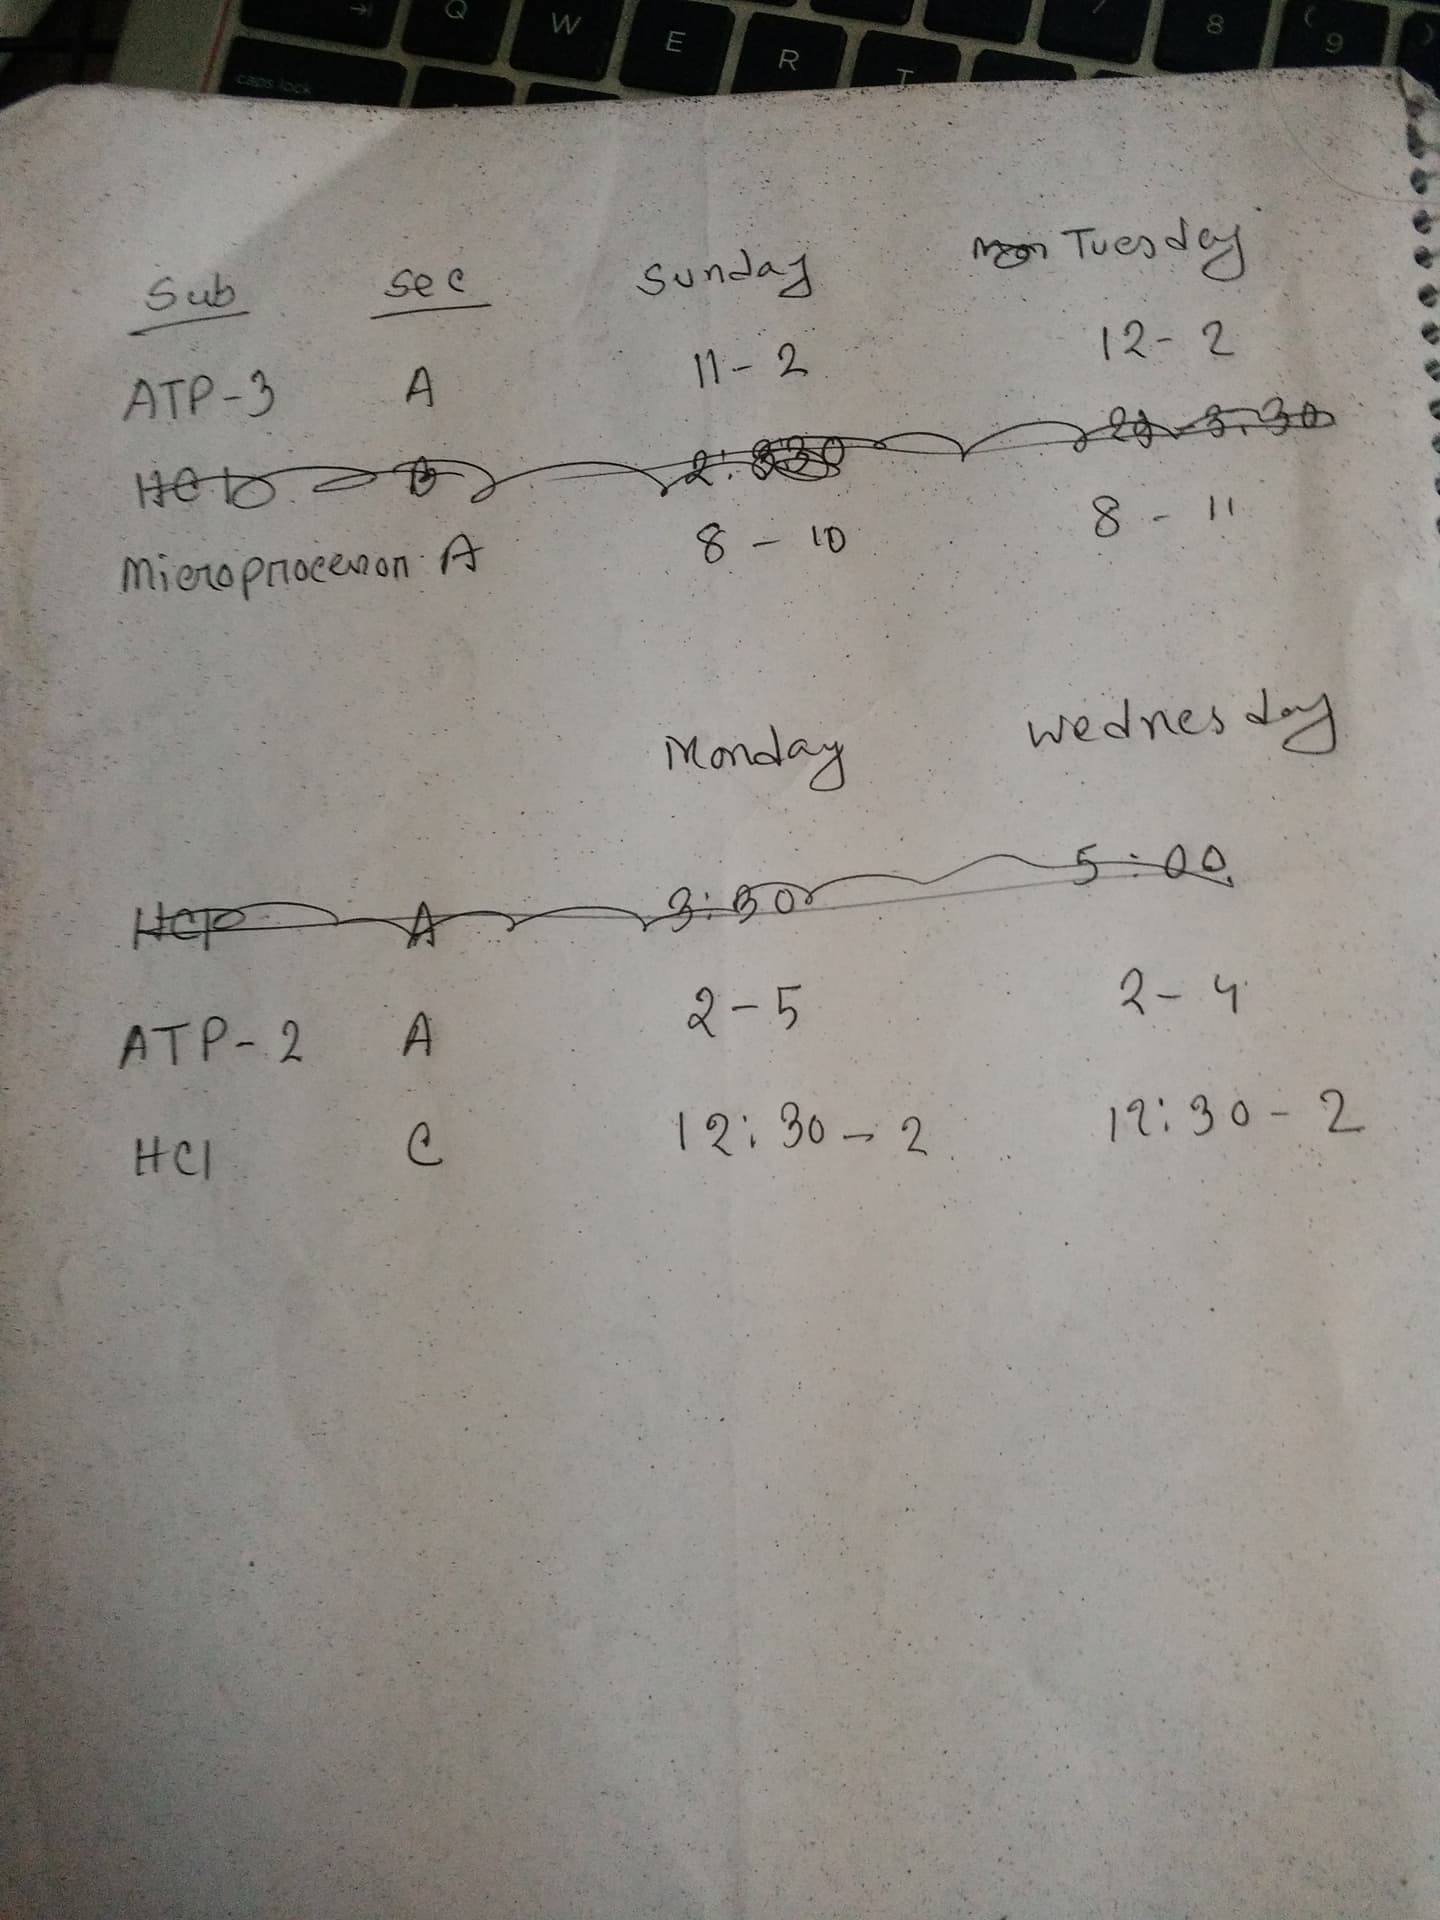 Q W E R T 7 8 ( 9 )
caps lock
Sub sec Sunday Tuesday
ATP-3 A 11-2 12-2
HCI B 2:330 2-3:30
Microprocessor A 8-10 8-11
Monday Wednesday
HCI A 3:30 5:00
ATP-2 A 2-5 2-4
HCI C 12:30-2 12:30-2